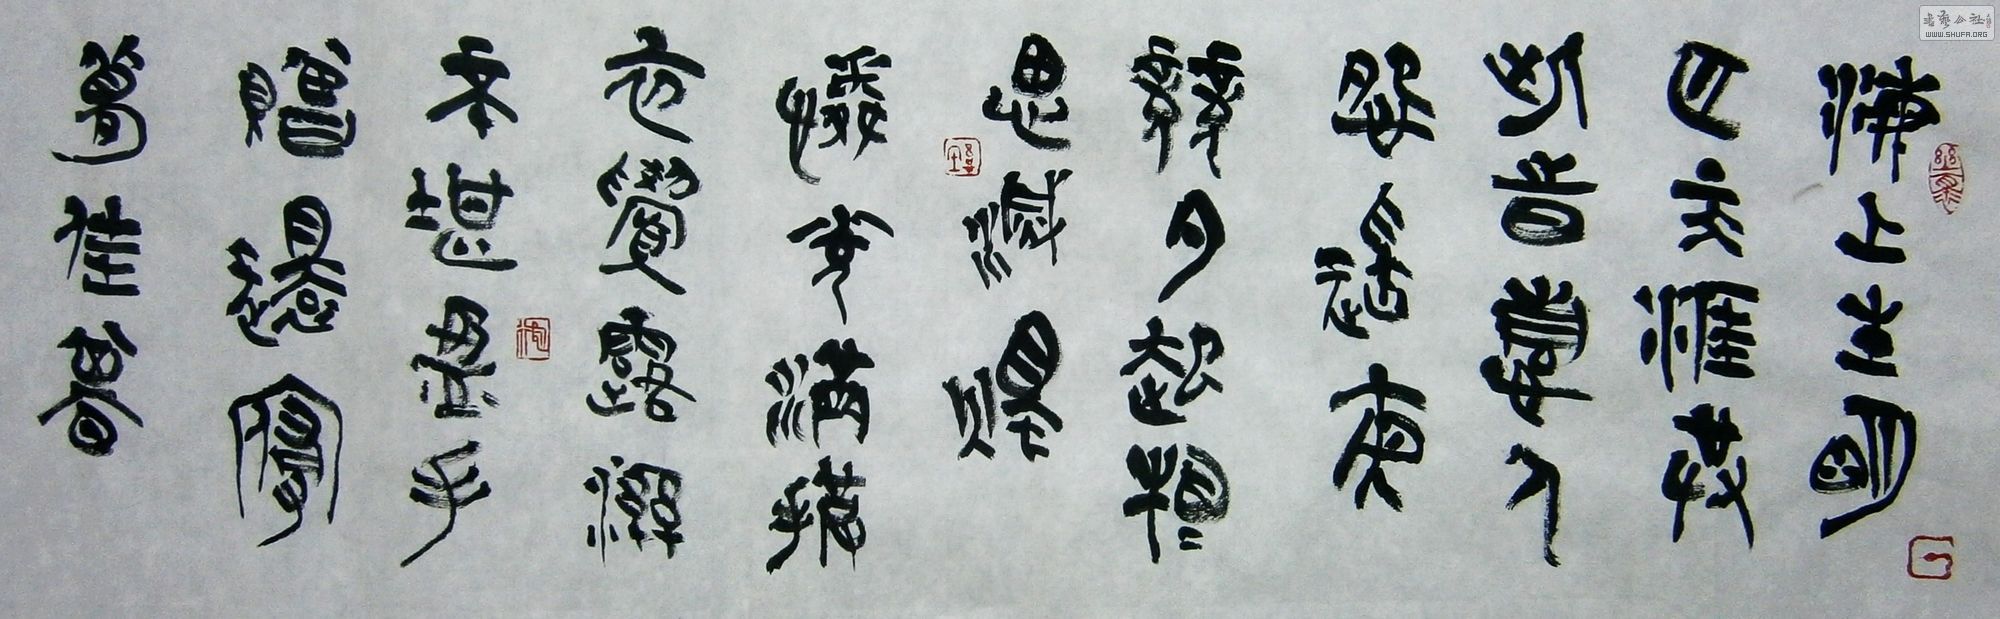 海上生明
月天涯共
此時情人
怨遙夜
竟夕起相
思滅燭
憐光滿披
衣覺露滋
不堪盈手
贈還寢
夢佳期
書藝公社
WWW.SHUFA.ORG